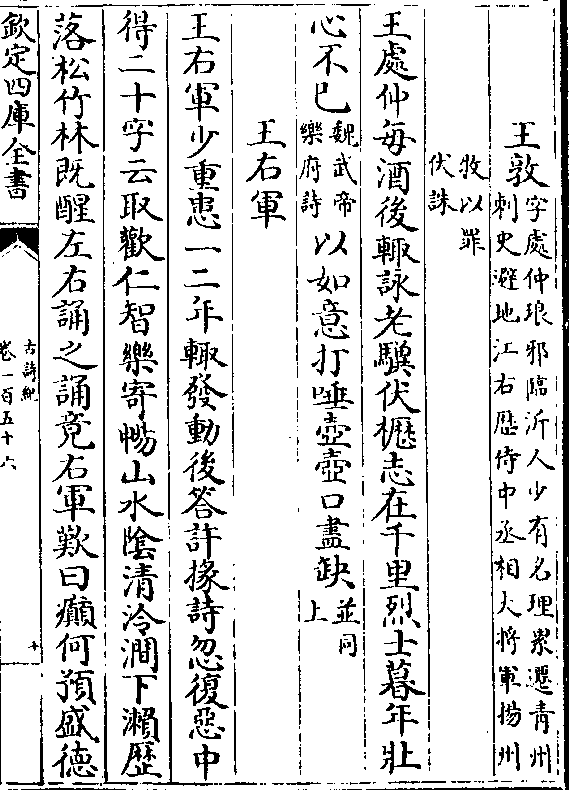 王敦字處仲琅邪臨沂人少有名理累遷青州
刺史避地江右歴侍中丞相大將軍揚州
牧以罪
伏誅
王處仲每酒後輙詠老驥伏櫪志在千里烈士暮年壯
心不已魏武帝樂府詩以如意打唾壺壺口盡缺並同上
王右軍
王右軍少重患一二年輙發動後答許掾詩忽復惡中
得二十字云取歡仁智樂寄暢山水陰清泠澗下瀨歴
落松竹林既醒左右誦之誦竟右軍歎曰癲何預盛德
欽定四庫全書
古詩紀
卷一百五十六
十